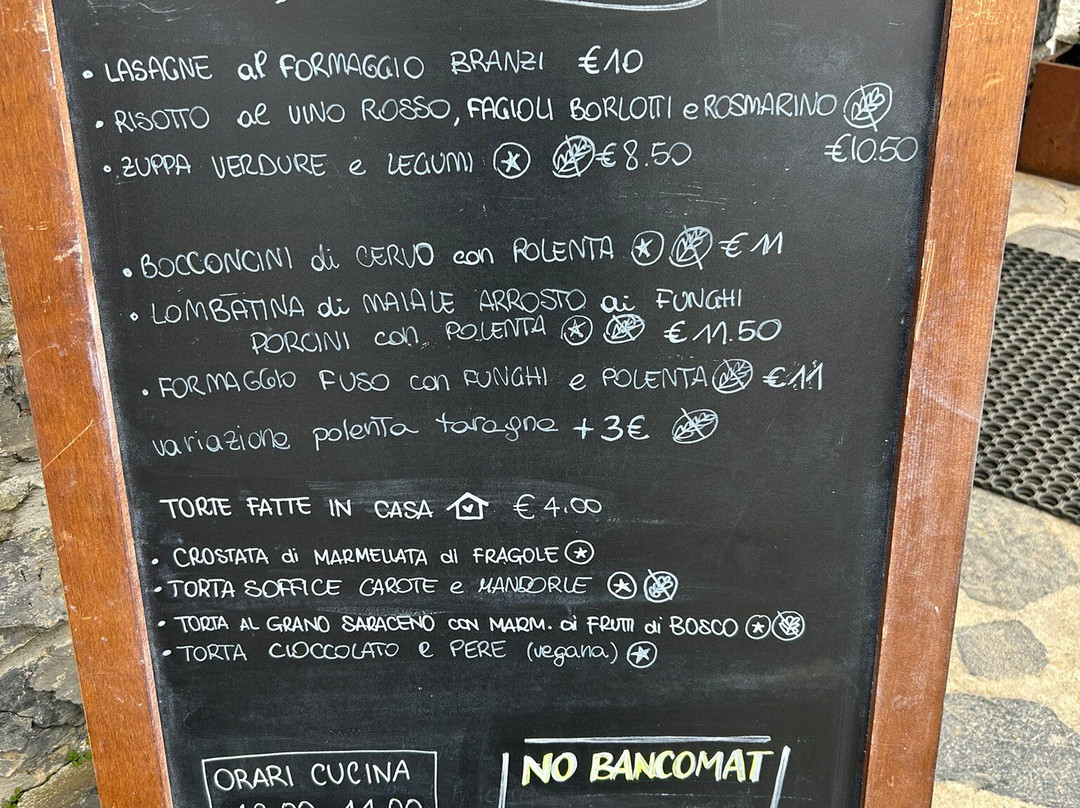 • LASAGNE al FORMAGGIO BRANZI €10
• RISOTTO al VINO ROSSO, FAGIOLI BORLOTTI e ROSMARINO
€10.50
• ZUPPA VERDURE e LEGUMI €8.50
• BOCCONCINI di CERVO con POLENTA €11
• LOMBATINA di MAIALE ARROSTO ai FUNGHI
PORCINI con POLENTA €11.50
• FORMAGGIO FUSO con FUNGHI e POLENTA €11
variazione polenta taragna +3€
TORTE FATTE IN CASA €4.00
• CROSTATA di MARMELLATA di FRAGOLE
• TORTA SOFFICE CAROTE e MANDORLE
• TORTA AL GRANO SARACENO CON MARM. di FRUTTI di BOSCO
• TORTA CIOCCOLATO e PERE (vegana)
ORARI CUCINA
NO BANCOMAT